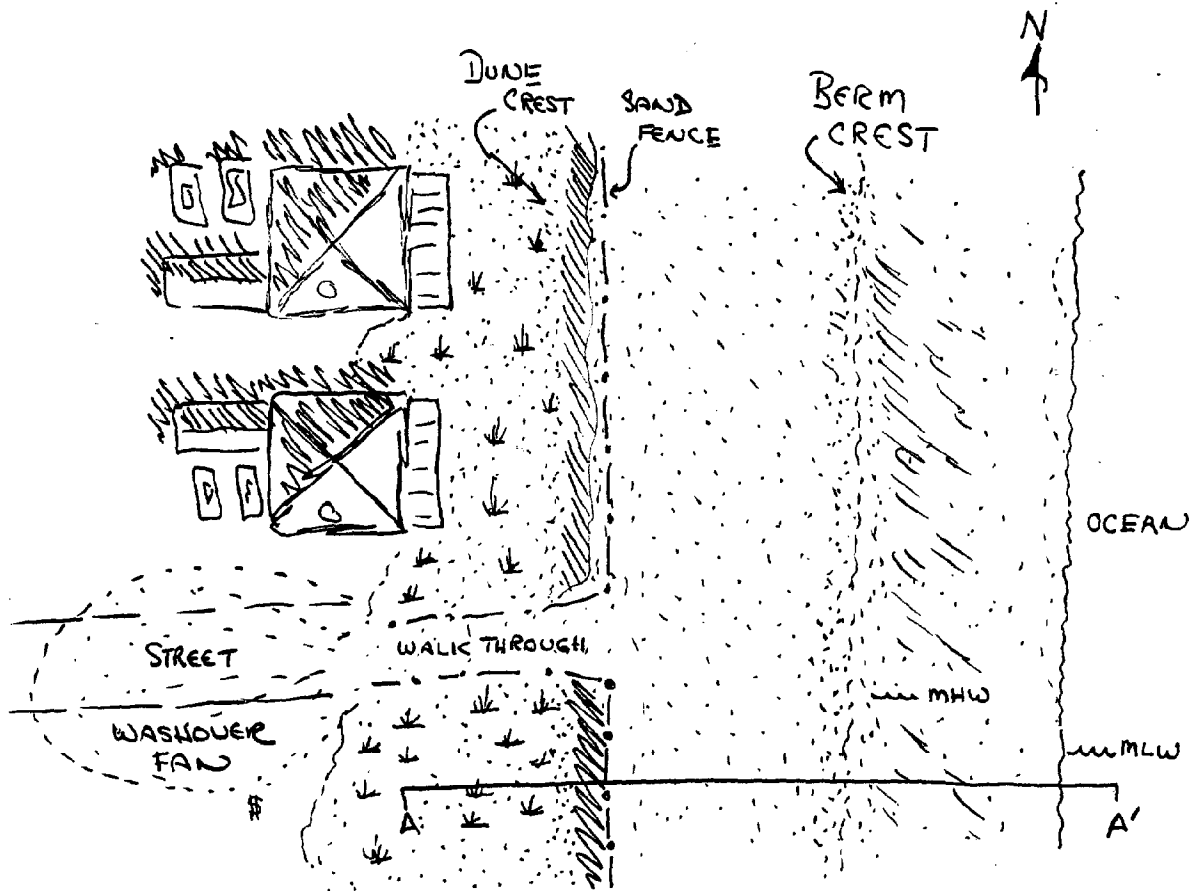 N
DUNE
CREST
SAND
FENCE
BERM
CREST
OCEAN
STREET
WALK THROUGH
MHW
WASHOVER
FAN
MLW
$
A
A'